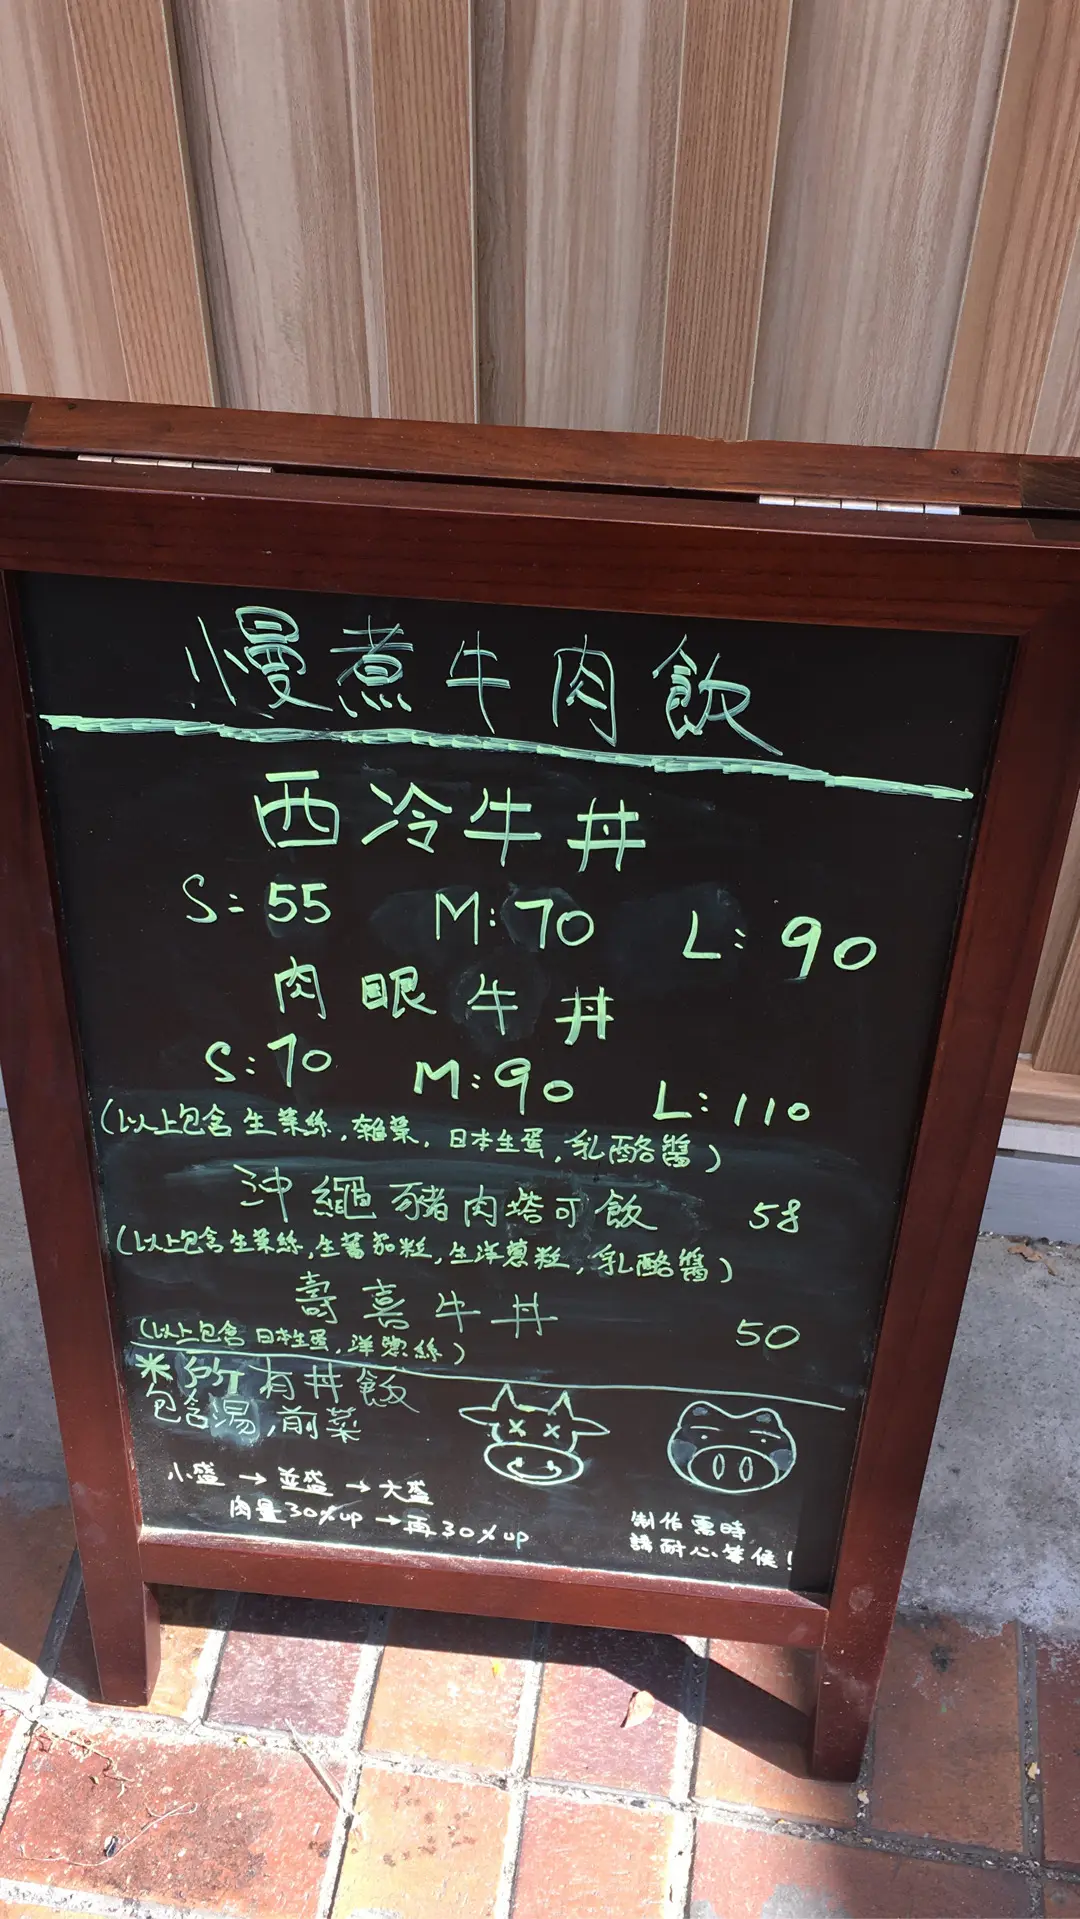 慢煮牛肉飯
西冷牛丼
S: 55 M: 70 L: 90
肉眼牛丼
S: 70 M: 90 L: 110
(以上包含生菜絲,雜菜,日本生蛋,乳酪醬)
沖繩豬肉塔可飯 58
(以上包含生菜絲,生蕃茄粒,生洋蔥粒,乳酪醬)
壽喜牛丼 50
(以上包含日本生蛋,洋蔥絲)
*所有丼飯
包含湯,前菜
小盛→並盛→大盛
肉量30%up→再30%up
制作需時
請耐心等候!